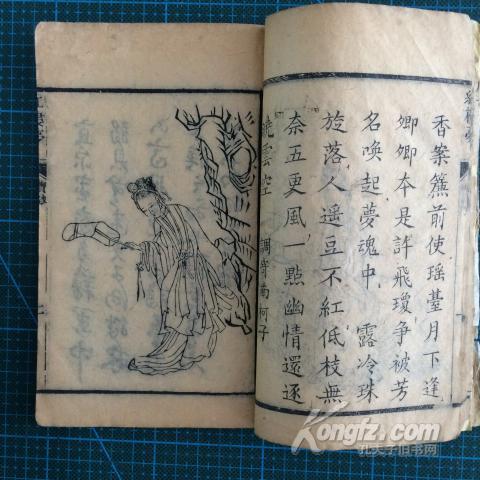 香案簾前使瑶臺月下逢
卿卿本是許飛瓊爭被芳
名唤起夢魂中 露冷珠
旋落人遥豆不紅低枝無
奈五更風一點幽情還逐
曉雲空 調寄南柯子
Kongfz.com
孔夫子旧书网